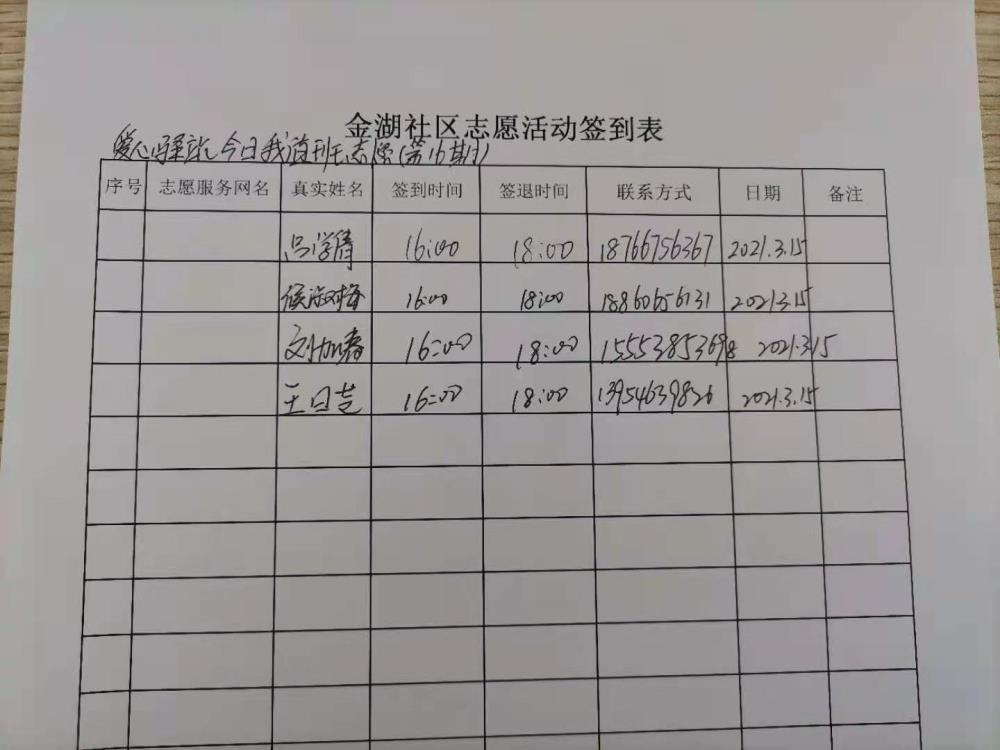 金湖社区志愿活动签到表
爱心驿站今日我值班志愿(第16期)
序号 志愿服务网名 真实姓名 签到时间 签退时间 联系方式 日期 备注
吕学倩 16:00 18:00 18766756367 2021.3.15
侯淑梅 16:00 18:00 18860656131 2021.3.15
刘加春 16:00 18:00 15553853698 2021.3.15
王日吉 16:00 18:00 13954639826 2021.3.15